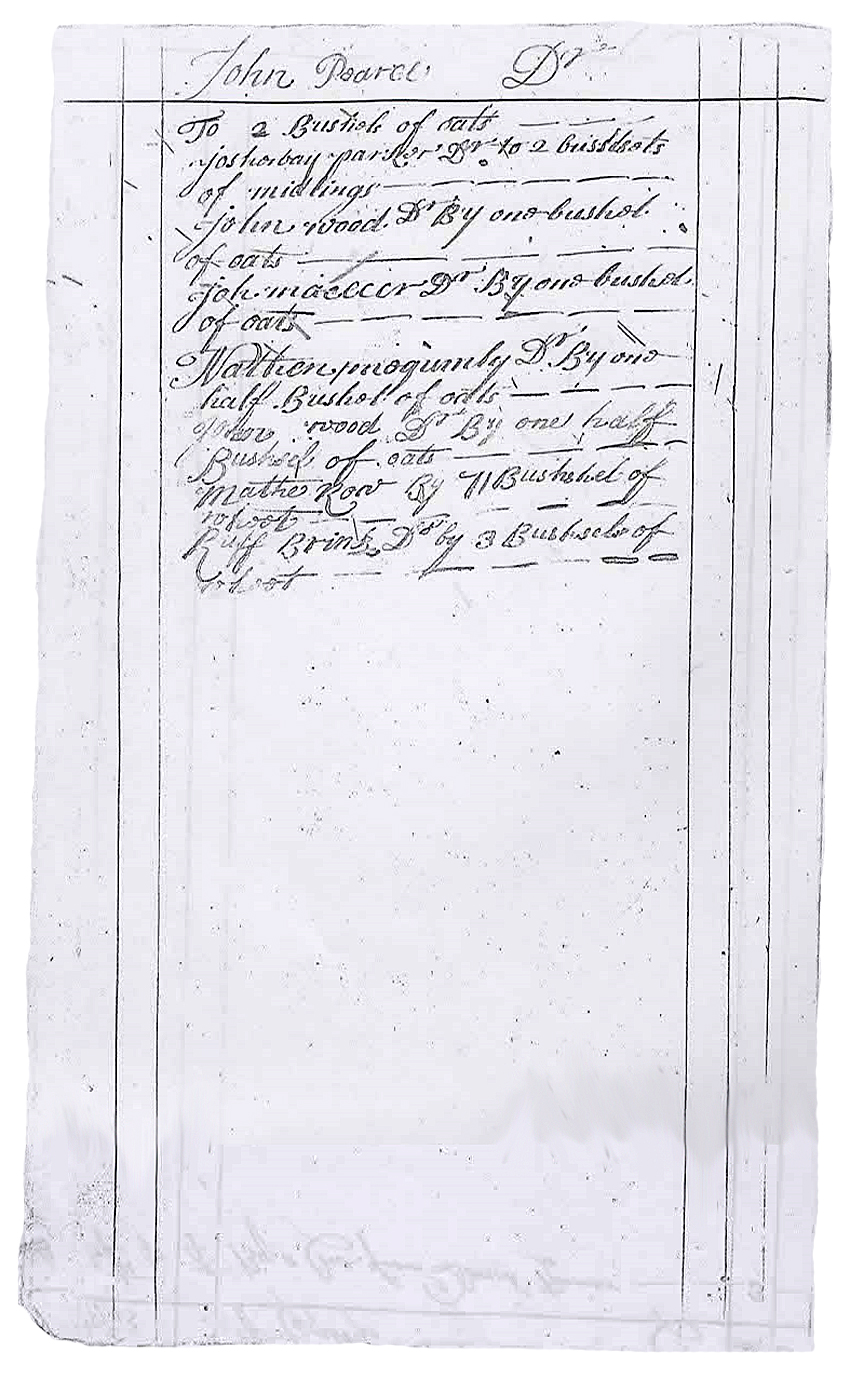 John Pearce Dr
To 2 Bushels of oats
joshaway parker Dr to 2 busshets
of midlings
john wood Dr By one bushel
of oats
joh Dr By one bushel
of oats
Nathen Dr By one
half Bushel of oats
john wood Dr By one half
Bushel of oats
Mathe Row By 71 Bushshel of
whoot
Ruff Brink Dr by 3 Bushsels of
whoot